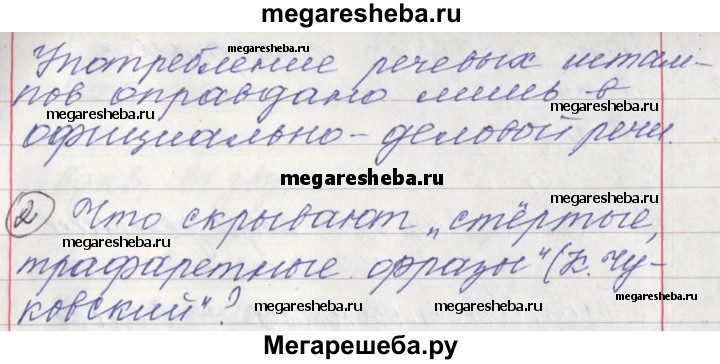 megaresheba.ru
Употребление речевых штам-
megaresheba.ru megaresheba.ru
пов оправдано лишь в
megaresheba.ru megaresheba.ru
официально-деловой речи.
megaresheba.ru
② Что скрывают „стёртые,
megaresheba.ru megaresheba.ru
трафаретные фразы" (К. Чу-
ковский"?
megaresheba.ru megaresheba.ru
Мегарешеба.ру